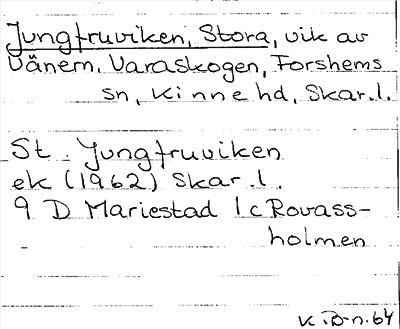 Jungfruviken, Stora, vik av
Vänern, Varaskogen, Forshems
sn, Kinne hd, Skar.l.
St. Jungfruviken
ek (1962) Skar.l.
9 D Mariestad 1c Rovass-
holmen